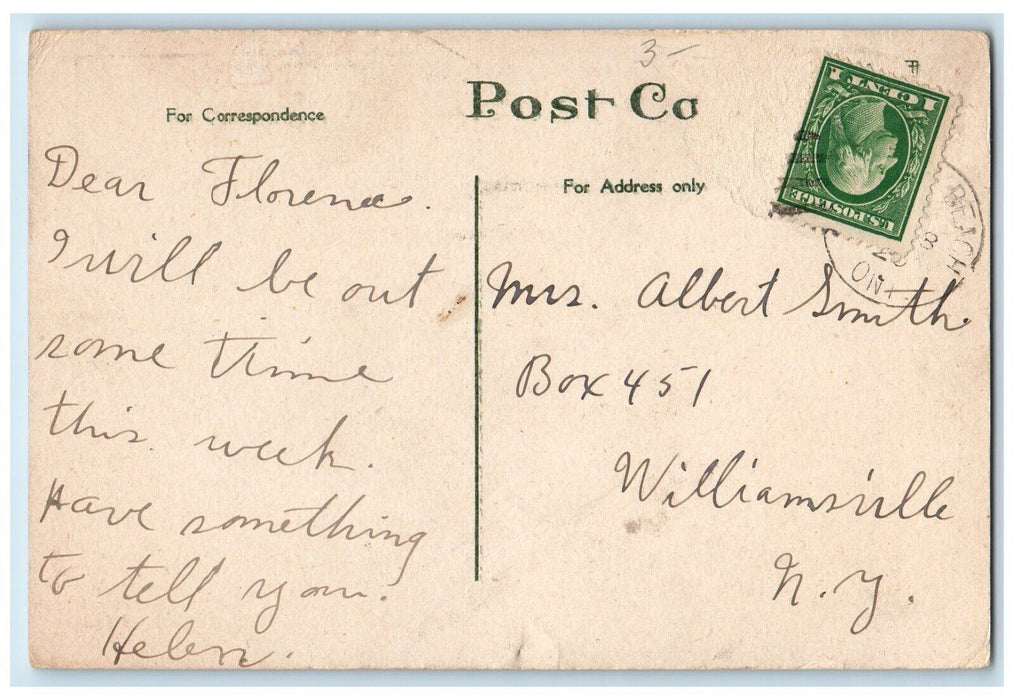 3-
Post Ca
For Correspondence
For Address only
1 CENT 1
U.S. POSTAGE
BEACH
ONT
Dear Florence.
I will be out
some time
this week.
Have something
to tell you.
Helen.
Mrs. Albert Smith
Box 451
Williamsville
N.Y.